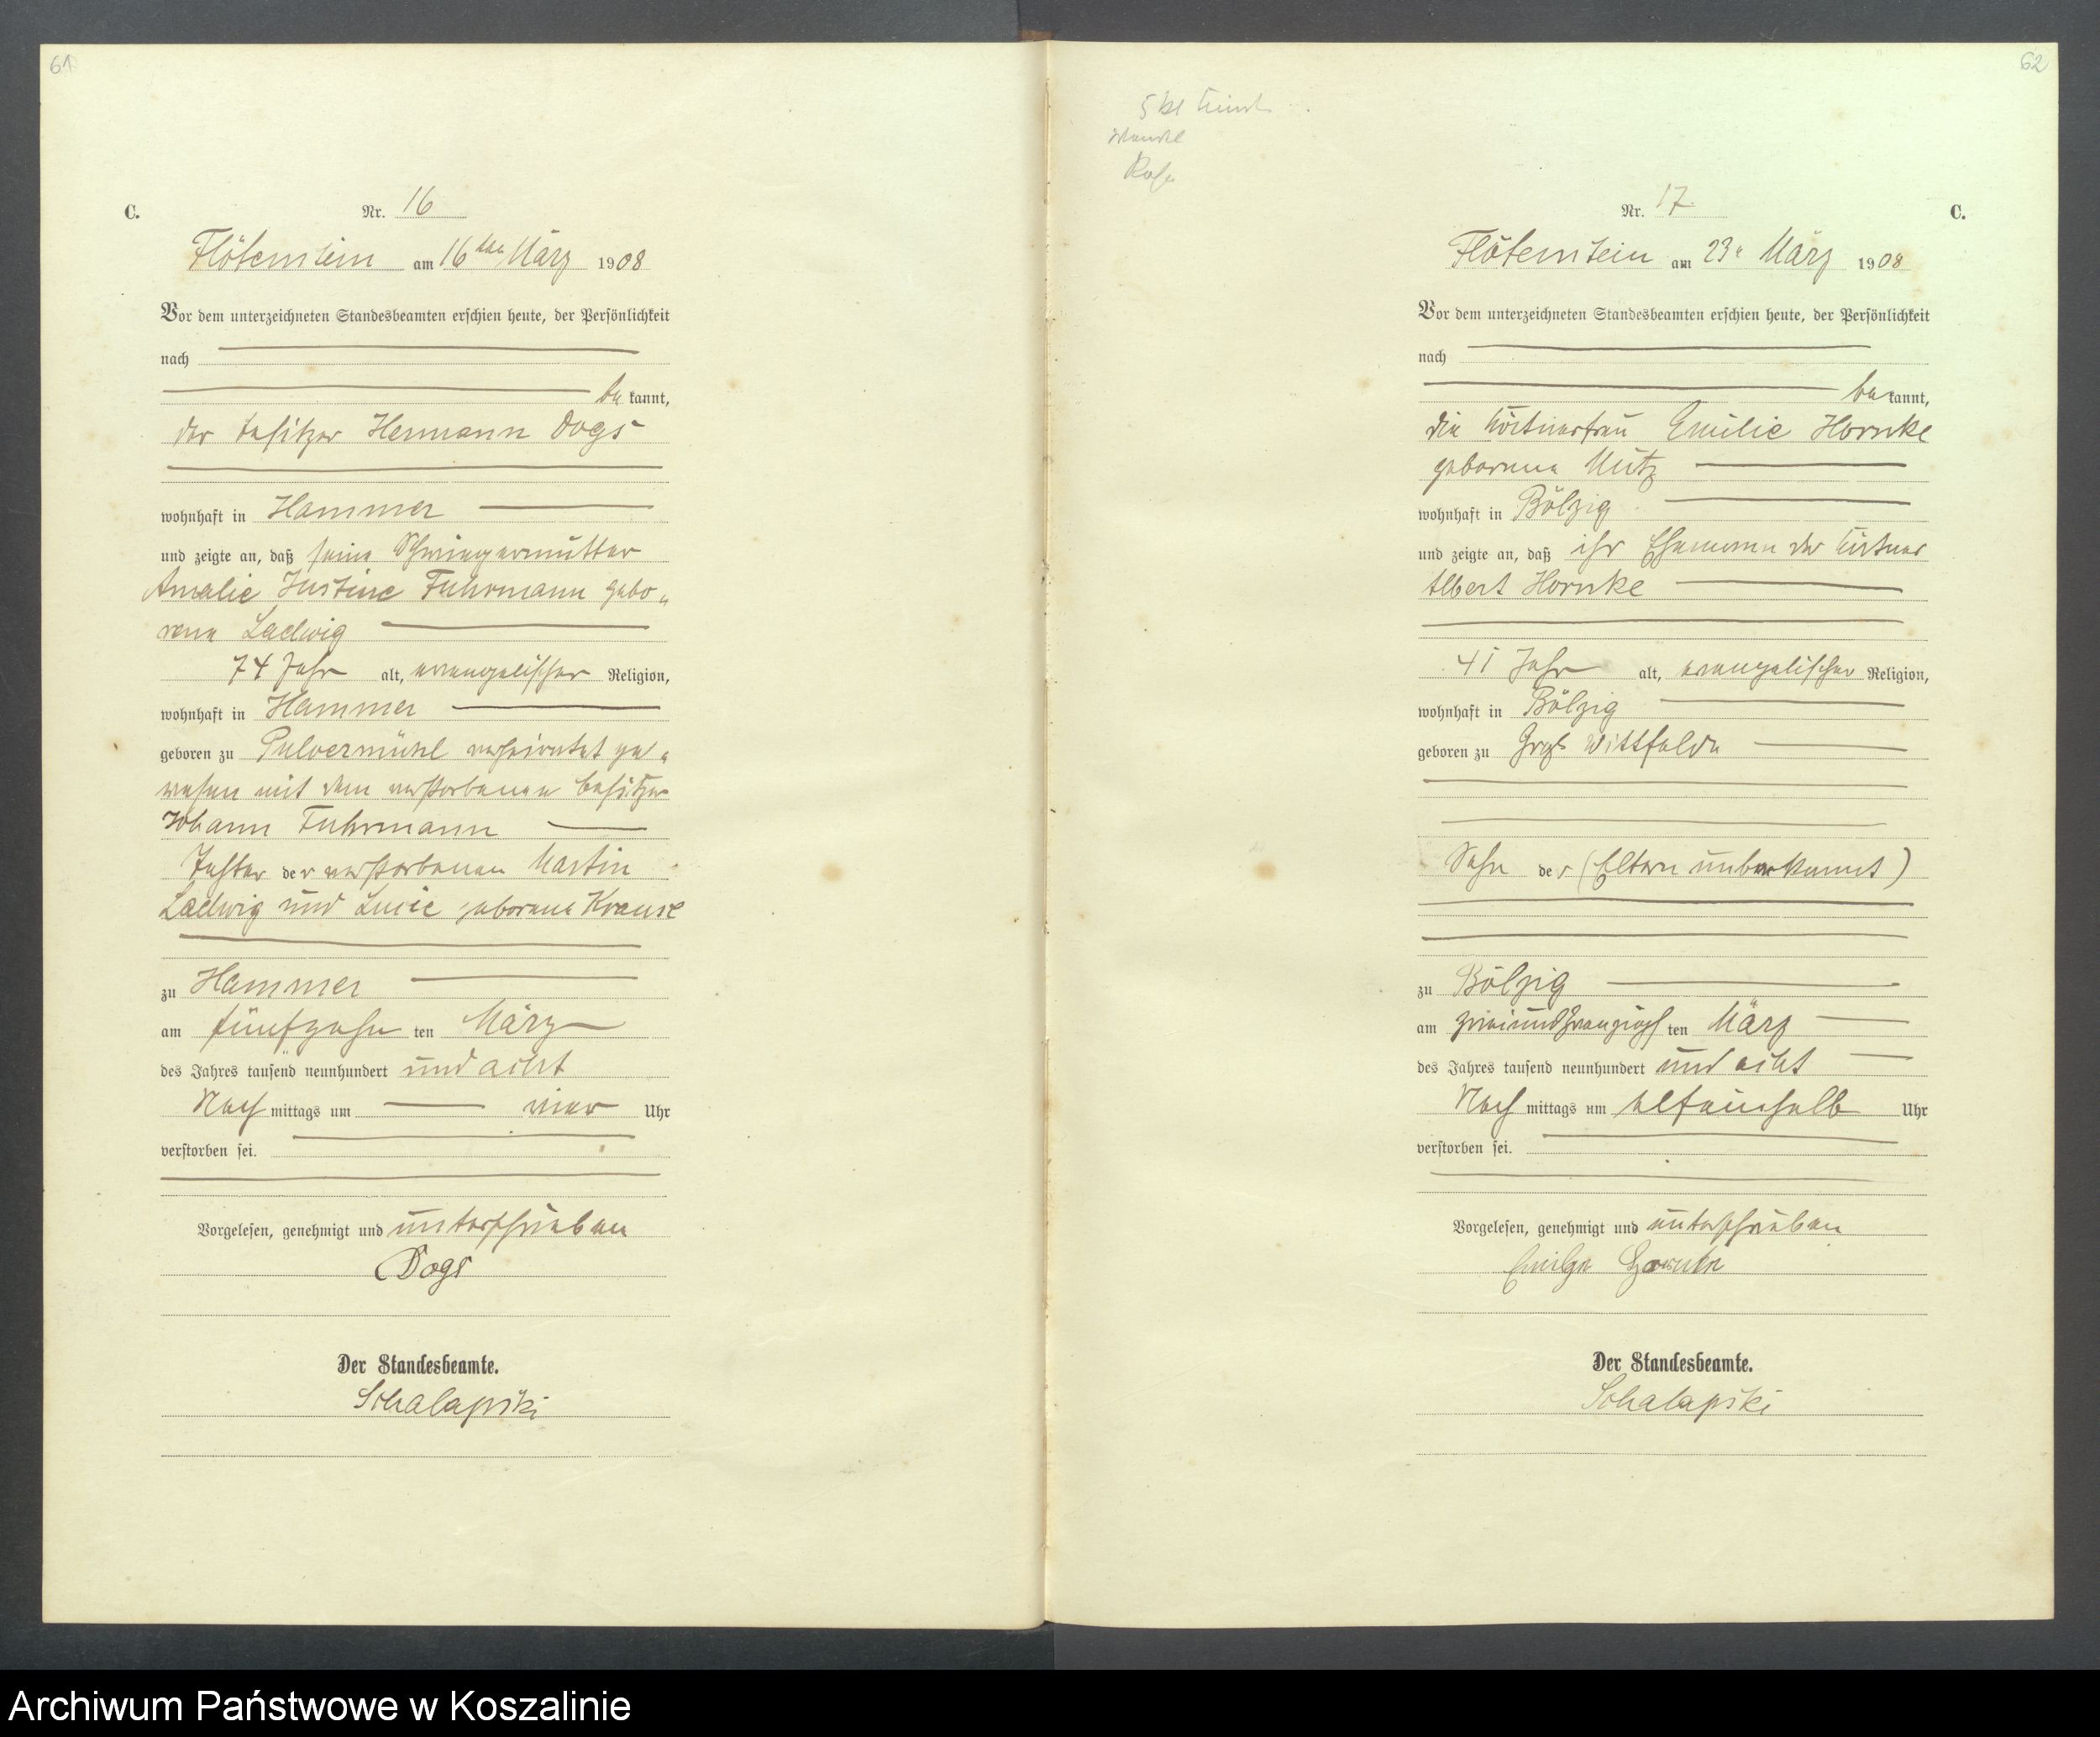 61
C.
Nr. 16
Flötenstein am 16ten März 1908
Vor dem unterzeichneten Standesbeamten erschien heute, der Persönlichkeit
nach
be kannt,
der Besitzer Hermann Dogs
wohnhaft in Hammer
und zeigte an, daß seine Schwiegermutter
Amalie Justine Fuhrmann gebo-
rene Ladwig
74 Jahr alt, evangelischer Religion,
wohnhaft in Hammer
geboren zu Pulvermühl verheiratet ge-
wesen mit dem verstorbenen Besitzer
Johann Fuhrmann
Tochter der verstorbenen Martin
Ladwig und Lucie geborene Krause
zu Hammer
am fünfzehn ten März
des Jahres tausend neunhundert und acht
Nach mittags um vier Uhr
verstorben sei.
Vorgelesen, genehmigt und unterschrieben
Dogs
Der Standesbeamte.
Schalapski
62
5 kl Kinder
Nr. 17
C.
Flötenstein am 23n März 1908
Vor dem unterzeichneten Standesbeamten erschien heute, der Persönlichkeit
nach
be kannt,
die Frau Emilie Hornke
geborene Mütz
wohnhaft in Bölzig
und zeigte an, daß ihr Ehemann der
Albert Hornke
41 Jahr alt, evangelischer Religion,
wohnhaft in Bölzig
geboren zu Groß Wittfelde
Sohn der (Eltern unbekannt)
zu Bölzig
am zweiundzwanzigs ten März
des Jahres tausend neunhundert und acht
Nach mittags um elfeinhalb Uhr
verstorben sei.
Vorgelesen, genehmigt und unterschrieben
Emilie Hornke
Der Standesbeamte.
Schalapski
Archiwum Państwowe w Koszalinie